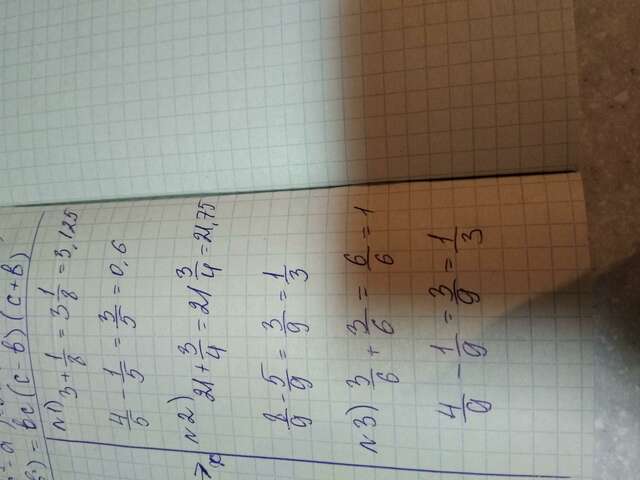 ) = bc (c - b) (c + b)
N1) 3 + 1/8 = 3 1/8 = 3,125
4/5 - 1/5 = 3/5 = 0,6
N2) 21 + 3/4 = 21 3/4 = 21,75
8/9 - 5/9 = 3/9 = 1/3
N3) 3/6 + 3/6 = 6/6 = 1
4/9 - 1/9 = 3/9 = 1/3